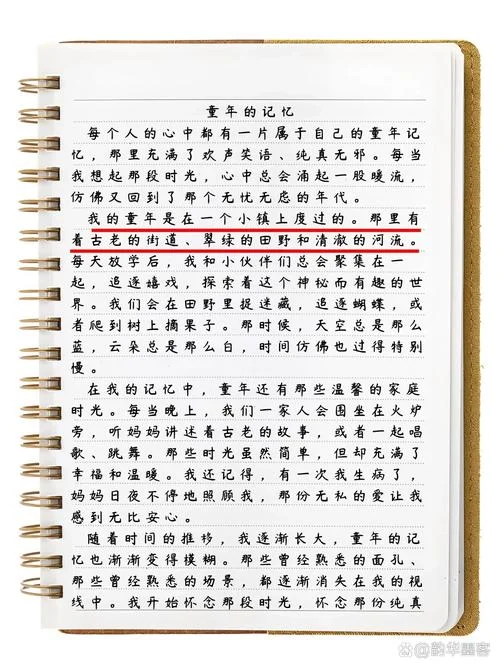 童年的记忆
每个人的心中都有一片属于自己的童年记
忆，那里充满了欢声笑语、纯真无邪。每当
我想起那段时光，心中总会涌起一股暖流，
仿佛又回到了那个无忧无虑的年代。
我的童年是在一个小镇上度过的。那里有
着古老的街道、翠绿的田野和清澈的河流。
每天放学后，我和小伙伴们总会聚集在一
起，追逐嬉戏，探索着这个神秘而有趣的世
界。我们会在田野里捉迷藏，追逐蝴蝶，或
者爬到树上摘果子。那时候，天空总是那么
蓝，云朵总是那么白，时间仿佛也过得特别
慢。
在我的记忆中，童年还有那些温馨的家庭
时光。每当晚上，我们一家人会围坐在火炉
旁，听妈妈讲述着古老的故事，或者一起唱
歌、跳舞。那些时光虽然简单，但却充满了
幸福和温暖。我还记得，有一次我生病了，
妈妈日夜不停地照顾我，那份无私的爱让我
感到无比安心。
随着时间的推移，我逐渐长大，童年的记
忆也渐渐变得模糊。那些曾经熟悉的面孔、
那些曾经熟悉的场景，都逐渐消失在我的视
线中。我开始怀念那段时光，怀念那份纯真